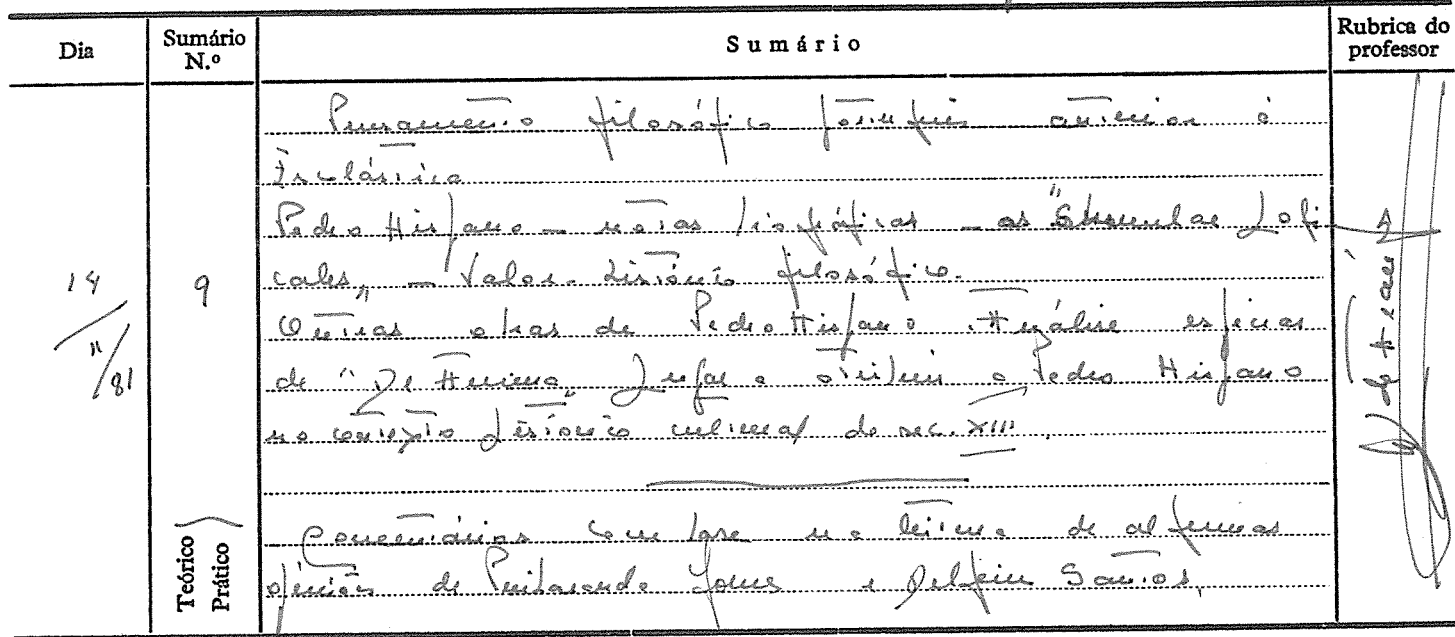 Dia
Sumário N.º
Sumário
Rubrica do professor
14/11/81
9
Pensamento filosófico português anterior à
Escolástica
Pedro Hispano – notas biográficas – as "Summulae Logi
cales" – Valor histórico filosófico.
Outras obras de Pedro Hispano. Análise especial
de "De Anima". Lugar a atribuir a Pedro Hispano
no contexto histórico cultural do sec. XIII.
Teórico
Prático
Comentários com base na leitura de algumas
opiniões de Pinharanda Gomes e Delfim Santos.